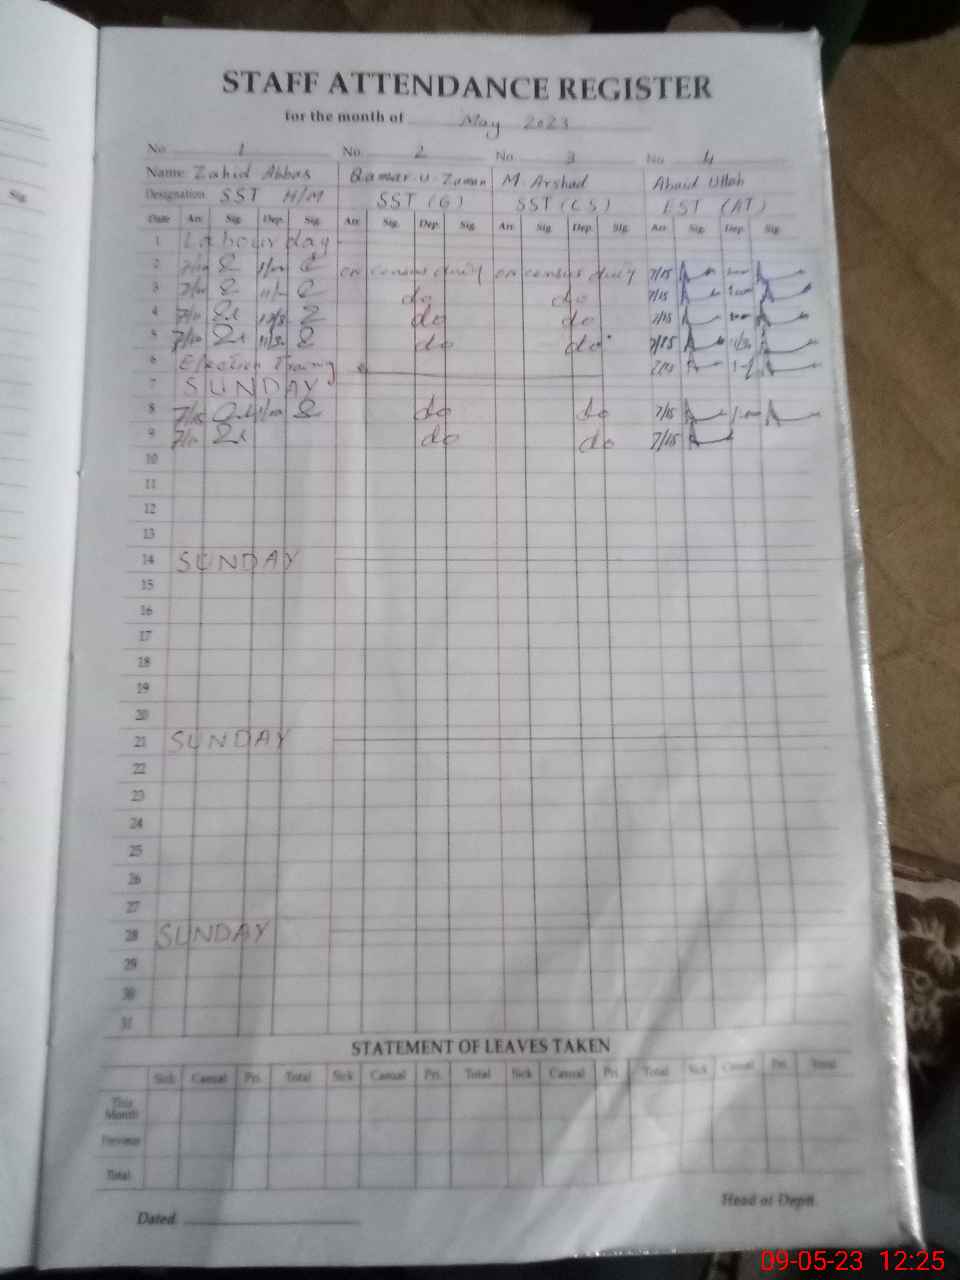 STAFF ATTENDANCE REGISTER
for the month of May 2023
No. 1 No. 2 No. 3 No. 4
Name: Zahid Abbas Qamar.u.Zaman M. Arshad Abaid Ullah
Designation: SST H/M SST (G) SST (CS) EST (AT)
Date Arr. Sig. Dep. Sig. Arr. Sig. Dep. Sig. Arr. Sig. Dep. Sig. Arr. Sig. Dep. Sig.
1 Labour day
2 on census duty on census duty 7/15
3 do do 7/15
4 do do 7/15
5 do do 7/15
6 Election Training
7 SUNDAY
8 do do 7/15
9 do do 7/15
10
11
12
13
14 SUNDAY
15
16
17
18
19
20
21 SUNDAY
22
23
24
25
26
27
28 SUNDAY
29
30
31
STATEMENT OF LEAVES TAKEN
Sick Casual Pri. Total Sick Casual Pri. Total Sick Casual Pri. Total Sick Casual Pri. Total
This Month
Previous
Total
Dated Head of Deptt.
09-05-23 12:25
Sig.